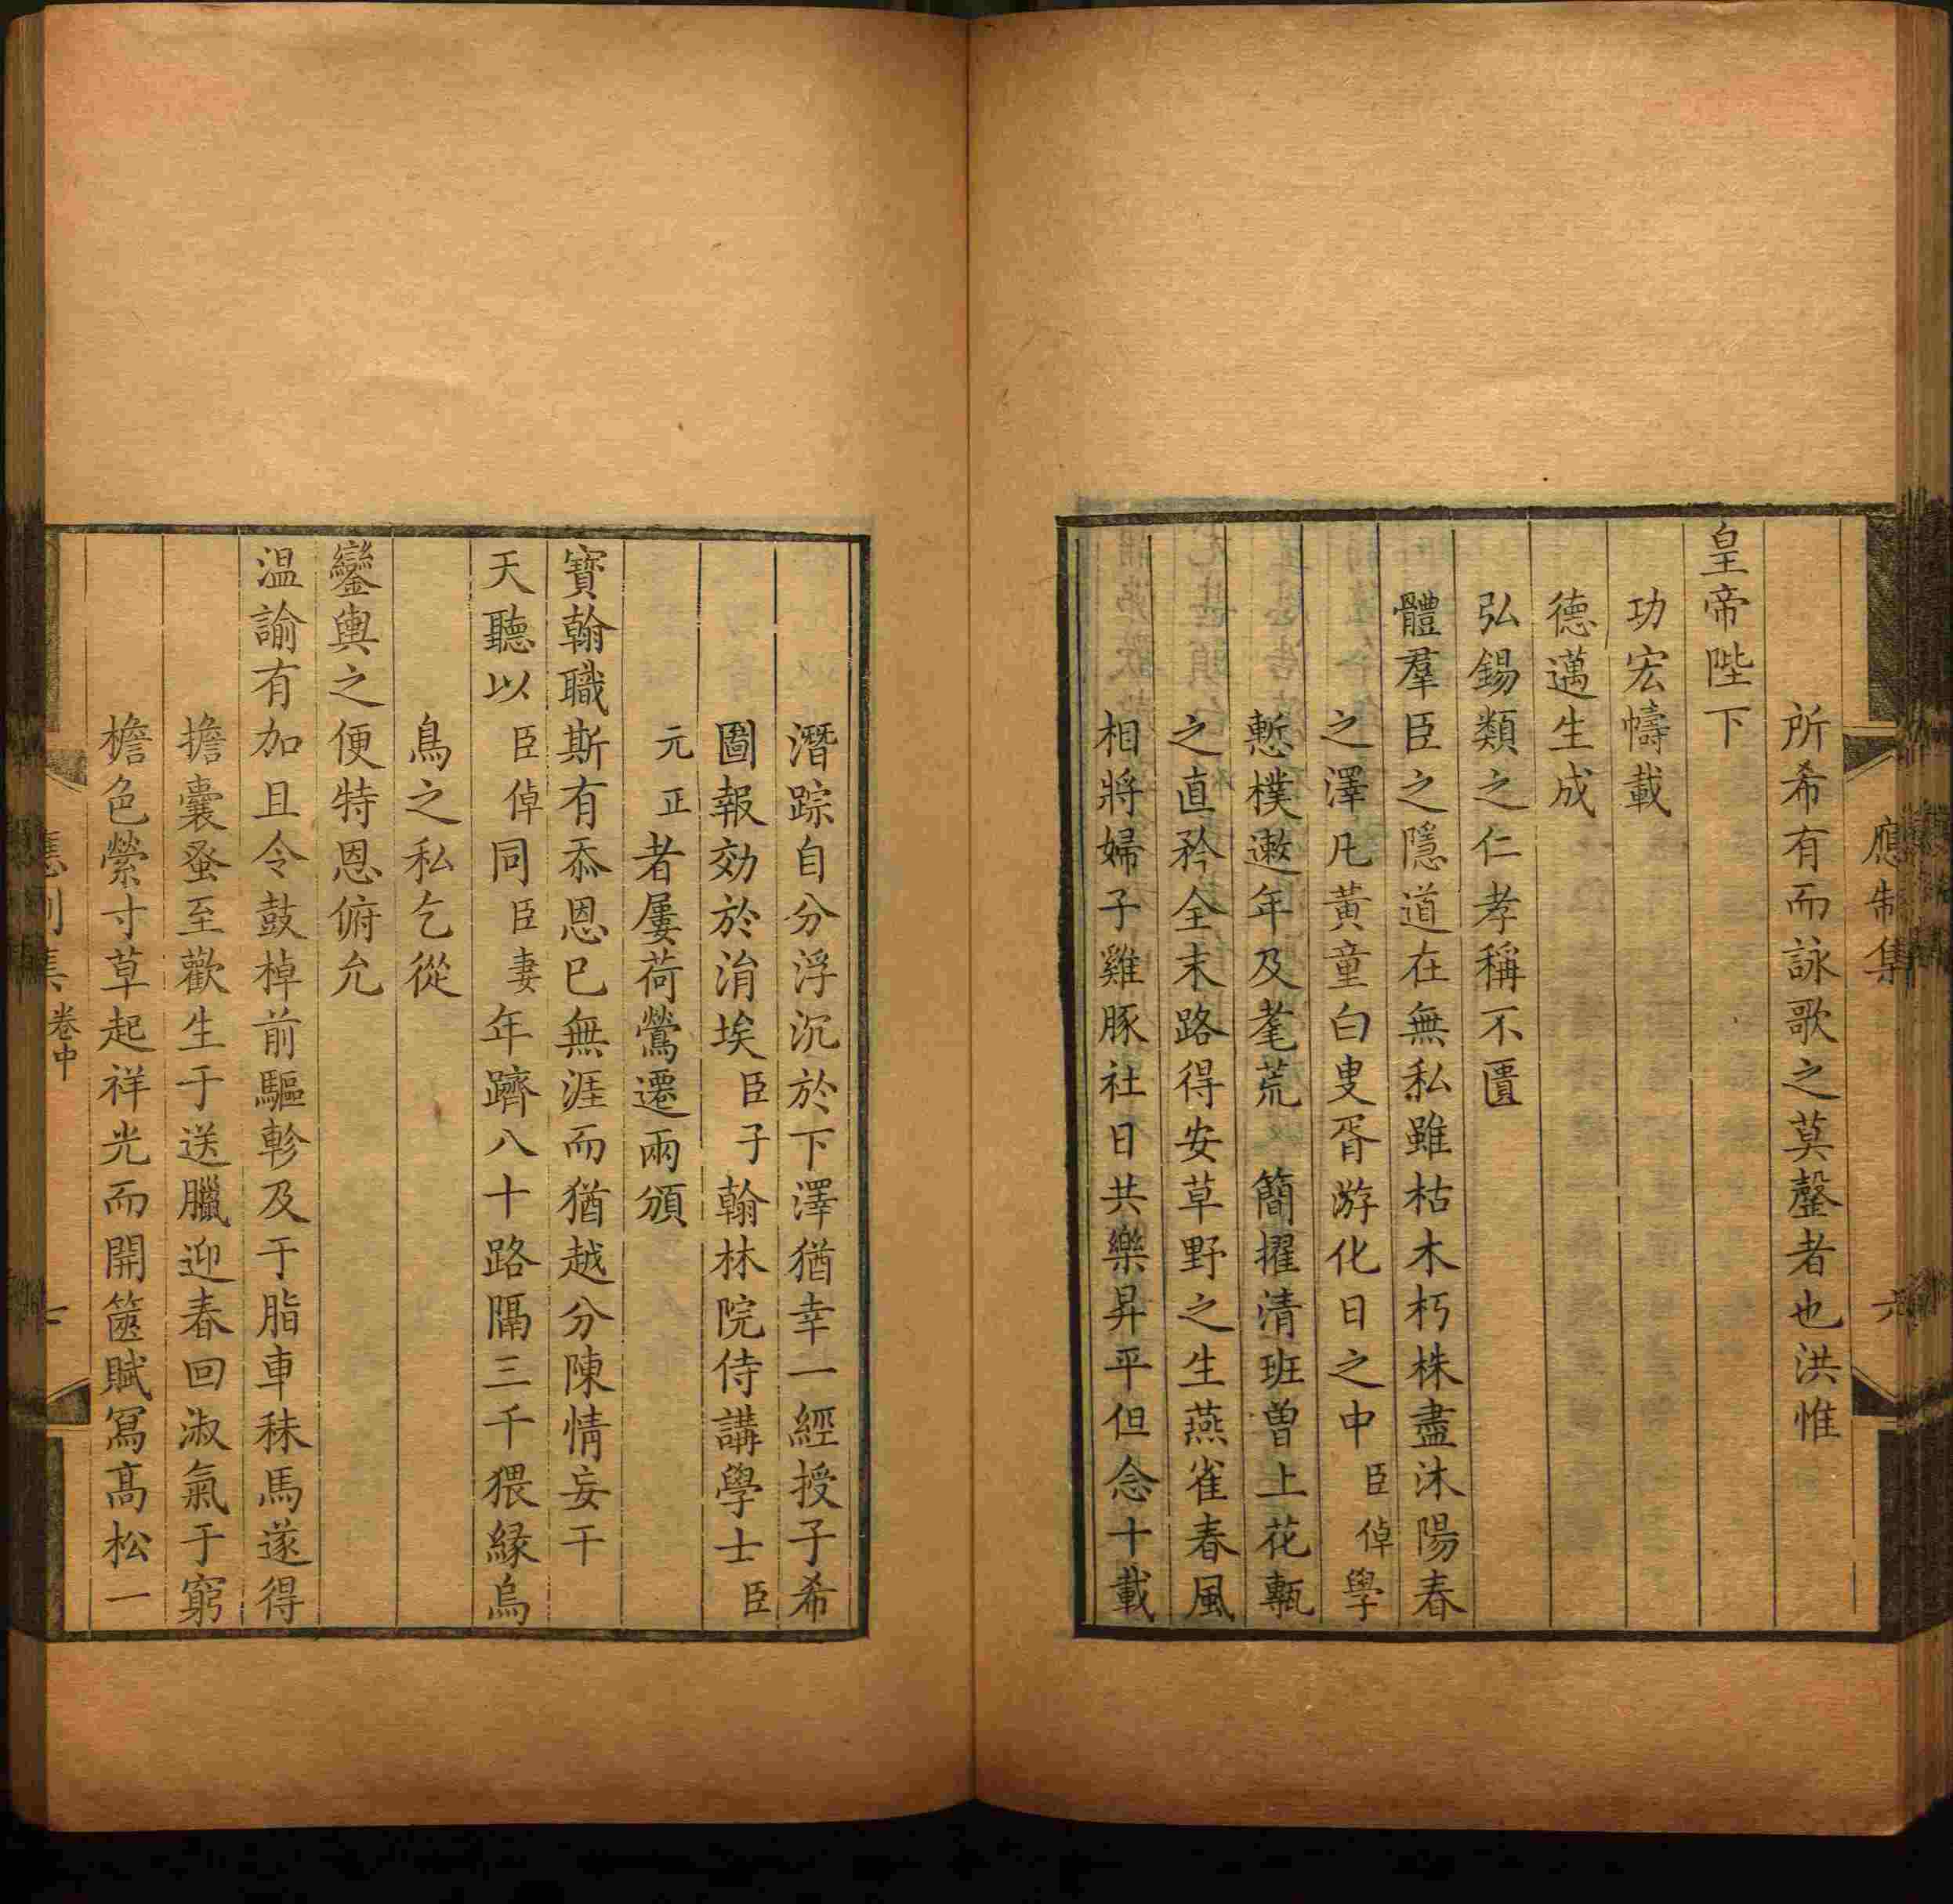 應制集
六
所希有而詠歌之莫罄者也洪惟
皇帝陛下
功宏幬載
德邁生成
弘錫類之仁孝稱不匱
體羣臣之隱道在無私雖枯木朽株盡沐陽春
之澤凡黃童白叟胥游化日之中臣倬學
慙樸遬年及耄荒簡擢清班曽上花甎
之直矜全末路得安草野之生燕雀春風
相將婦子雞豚社日共樂昇平但念十載
潛踪自分浮沉於下澤猶幸一經授子希
圖報効於涓埃臣子翰林院侍講學士臣
元正者屢荷鶯遷兩頒
寶翰職斯有忝恩已無涯而猶越分陳情妄干
天聽以臣倬同臣妻年躋八十路隔三千猥緣烏
鳥之私乞從
鑾輿之便特恩俯允
温諭有加且令鼓棹前驅軫及于脂車秣馬遂得
擔囊蚤至歡生于送臘迎春回淑氣于窮
檐色縈寸草起祥光而開篋賦寫高松一
應制集 卷中
七